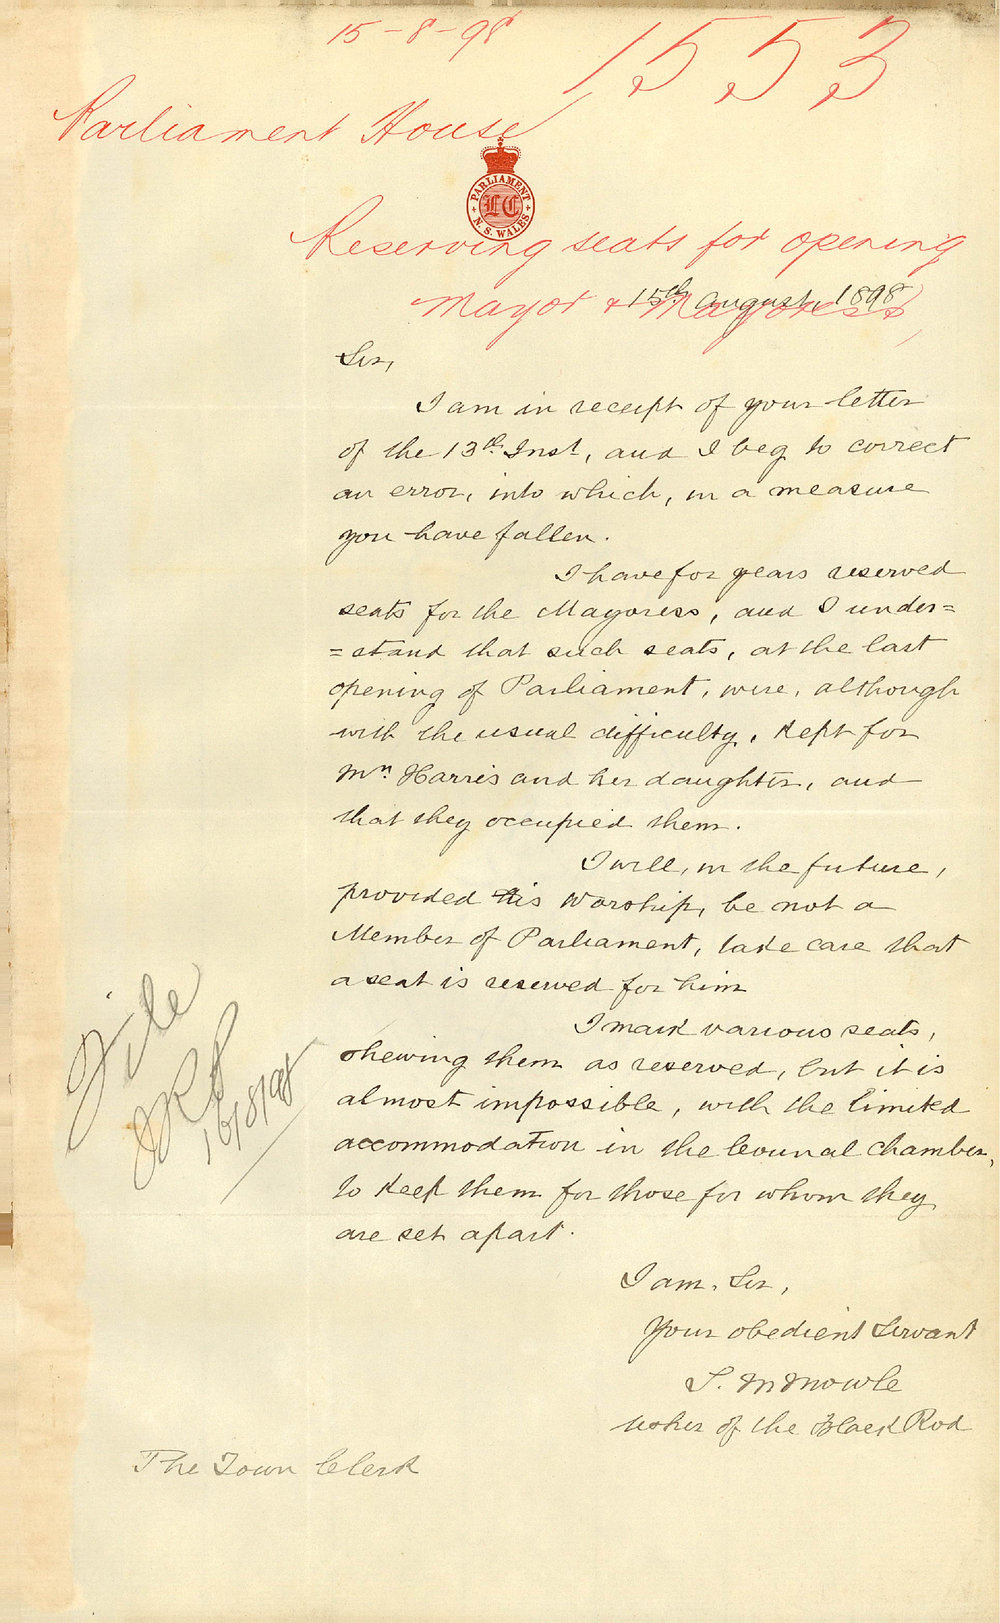 15-8-98
1553
Parliament House
PARLIAMENT
LC
N. S. WALES
Reserving seats for opening
Mayor & Mayoress
15th August, 1898
Sir,
I am in receipt of your letter
of the 13th Inst, and I beg to correct
an error, into which, in a measure
you have fallen.
I have for years reserved
seats for the Mayoress, and I under=
=stand that such seats, at the last
opening of Parliament, were, although
with the usual difficulty, kept for
Mrs Harris and her daughter, and
that they occupied them.
I will, in the future,
provided His Worship, be not a
Member of Parliament, take care that
a seat is reserved for him
I mark various seats,
shewing them as reserved, but it is
almost impossible, with the limited
accommodation in the Council Chamber,
to keep them for those for whom they
are set apart.
File
16/8/98
I am, Sir,
Your obedient Servant
Mowle
Usher of the Black Rod
The Town Clerk